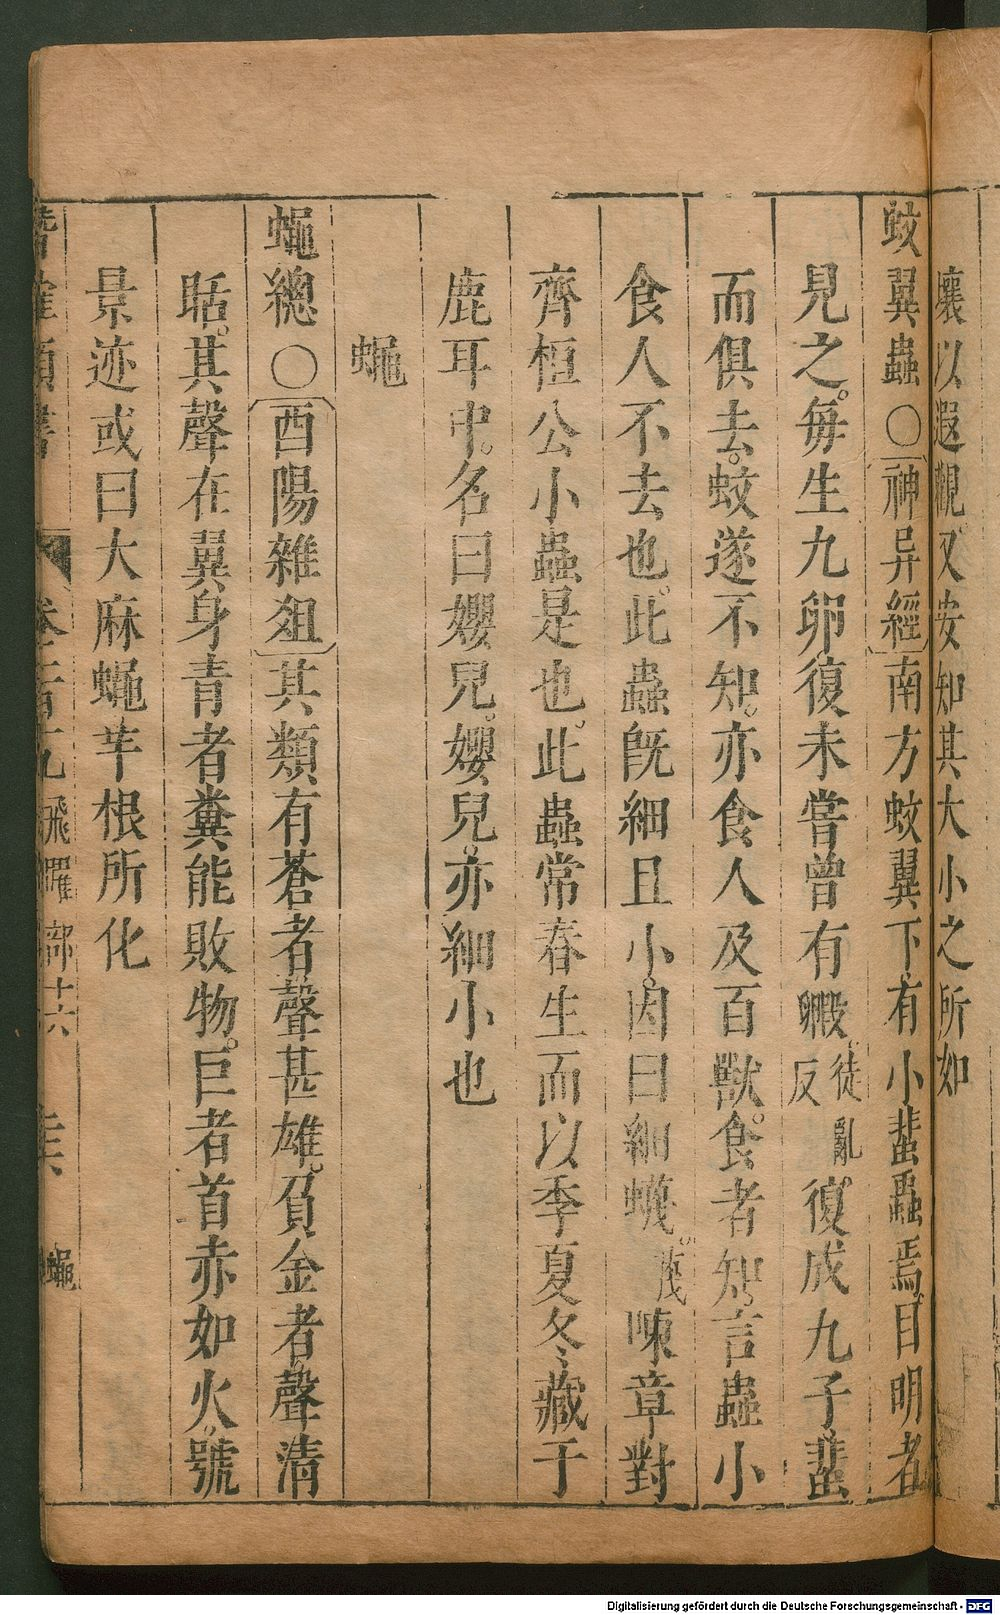 壤以遐觀又安知其大小之所如
蚊翼蟲○神异經南方蚊翼下有小蜚蟲焉目明者
見之每生九卵復未嘗曾有毈徒亂反復成九子蜚
而俱去蚊遂不知亦食人及百獸食者知言蟲小
食人不去也此蟲既細且小因曰細蠛蔑㖦章對
齊桓公小蟲是也此蟲常春生而以季夏冬藏于
鹿耳中名曰孆兒孆兒亦細小也
蠅
蠅總○酉陽雜爼其類有蒼者聲甚雄負金者聲清
聒其聲在翼身青者糞能敗物巨者首赤如火號
景迹或曰大麻蠅芊根所化
飛躍部十六
蠅
Digitalisierung gefördert durch die Deutsche Forschungsgemeinschaft - DFG